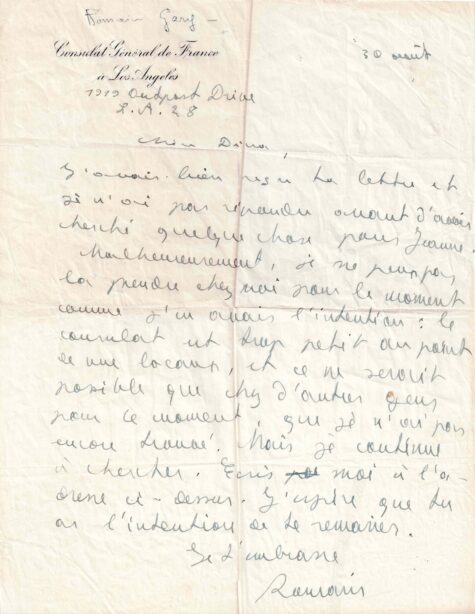 Romain Gary -
Consulat Général de France
à Los Angeles
30 août
1919 Outpost Drive
L.A. 28
Mon Dina,
J'avais bien reçu ta lettre et
je n'ai pas répondu avant d'avoir
cherché quelque chose pour Jeanne.
Malheureusement, je ne peux pas
la prendre chez moi pour le moment
comme j'en avais l'intention : le
consulat est trop petit au point
de vue locaux, et ce ne serait
possible que chez d'autres gens
pour ce moment, que je n'ai pas
encore trouvé. Mais je continue
à chercher. Ecris moi à l'a-
dresse ci-dessus. J'espère que tu
as l'intention de te remarier.
Je t'embrasse
Romain